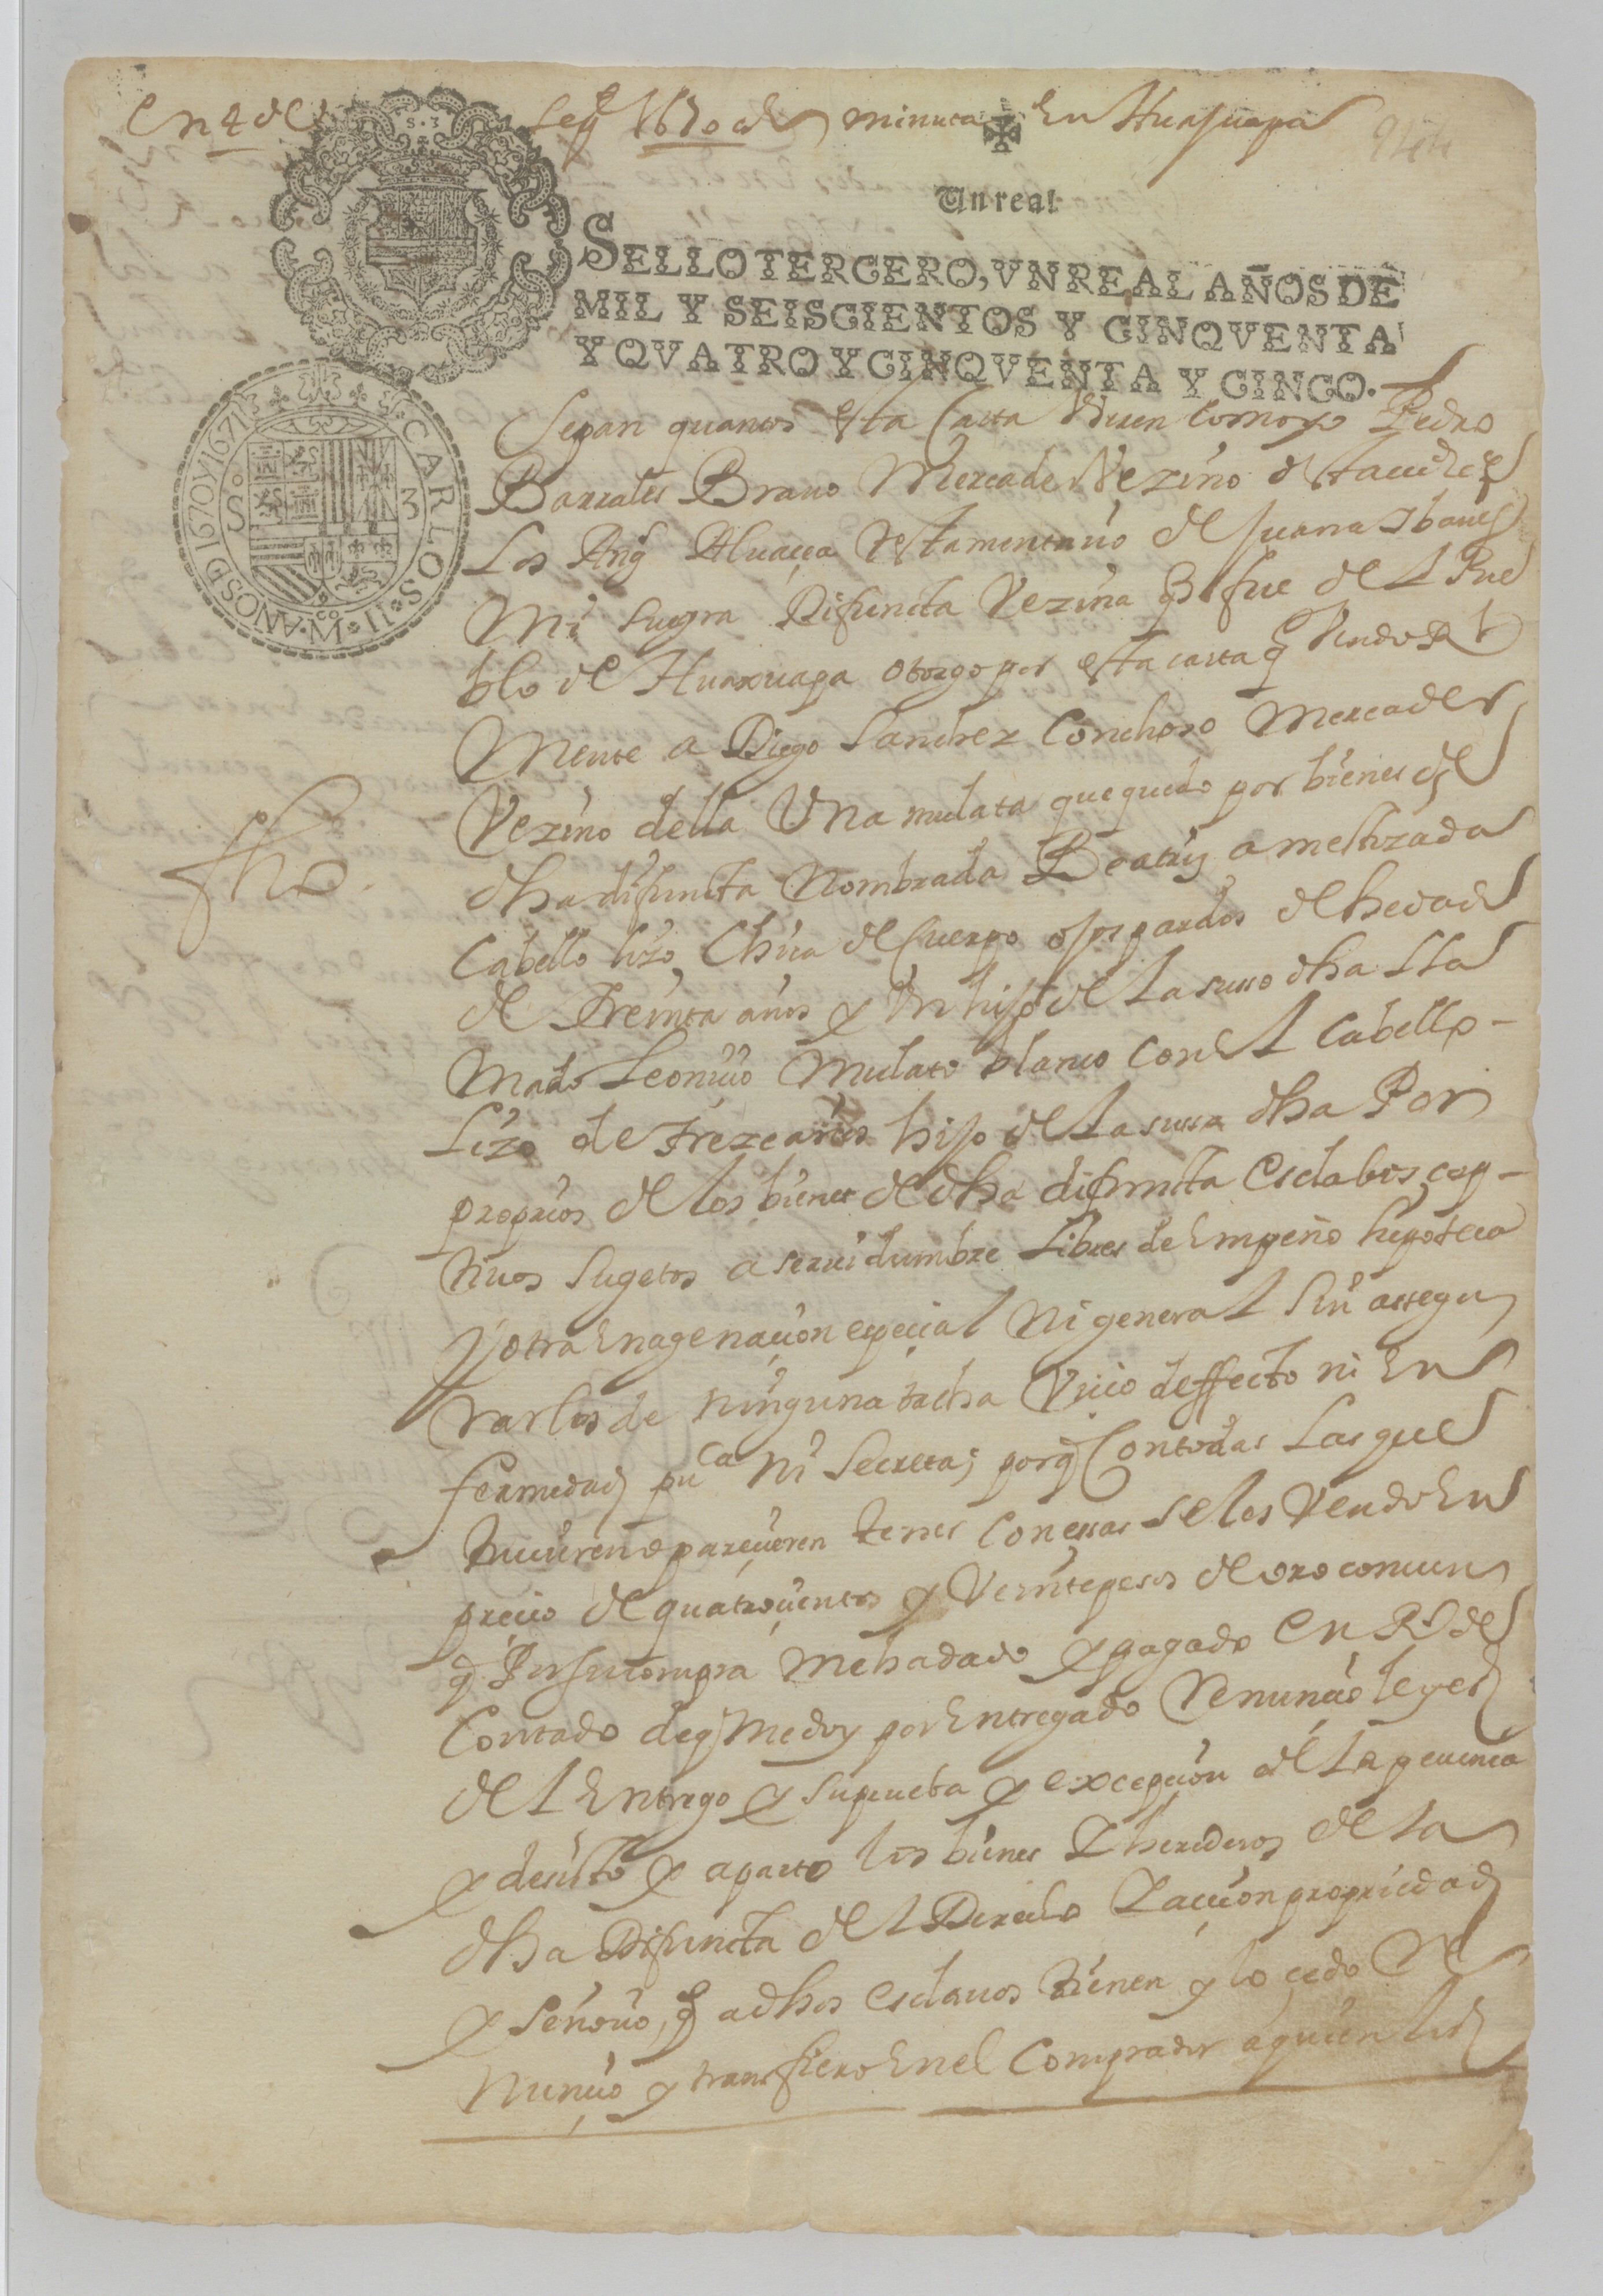 En 4 de Seg 1670 as minuta En Huajuapa
944
S. 3
Un real
SELLO TERCERO, VN REAL AÑOS DE
MIL Y SEISCIENTOS Y CINQVENTA
Y QVATRO Y CINQVENTA Y CINCO.
CARLOS·II·M·AÑOSD1670Y1671
S 3
Sepan quantos esta Carta Vieren como yo Pedro
Barrales Brauo Mercader Vezino desta ciud de
Los Ang Aluaçea testamentario de Juana Ybañes
Mi suegra Difuncta Vezina q fue del Pue
blo de Huaxuapa otorgo por esta carta q Vendo Rl
Mente a Diego Sanchez Conchoso Mercader
Vezino della Vna mulata que quedo por bienes de
dha difuncta Nombrada Beatriz amestizada
Cabello lizo, Chica de Cuerpo ojos pardos de hedad
de Treinta años y Vn hijo de la suso dha lla
Mado Leonicio Mulato blanco con el Cabello -
Lizo de treze años hijo de la susso dha Por
proprios de los bienes de dha difuncta Esclabos cap -
tiuos Sugetos a seruidumbre Libres de Empeño hipoteca
y otra Enagenaçion espeçial Ni general Sin assegu
rarlos de ninguna tacha Viçio deffecto ni En
fermedad puca ni Secreta; porq Con todas Las que
tuuieren o pareçieren tener Con essas se los Vendo En
preçio de quatroçientos y Veinte pesos de oro comun
q Por su compra me ha dado y pagado En Rs de
Contado de q me doy por Entregado Renunçio leyes
del Entrego y su prueba y excepçion de la pecunia
y desisto y aparto los bienes y herederos de la
dha Difuncta del Derecho y acçion propriedad
y Señorio, q a dhos esclauos tienen y lo çedo Re
Nunçio y transfiero En el Comprador a quien les
fho.